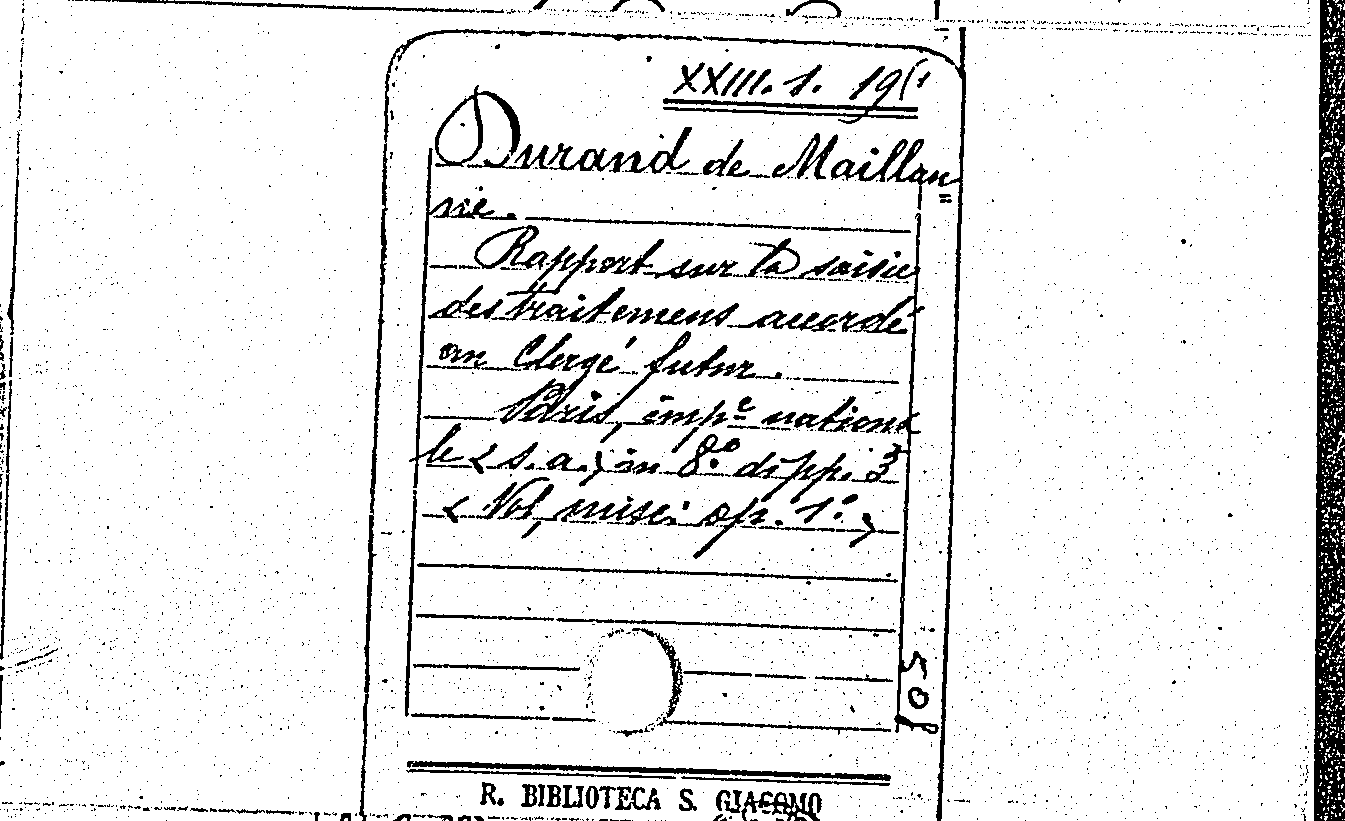 XXIII. 1. 19(1
Durand de Maillan=
ne.
Rapport sur la saisie
des traitemens accordé
au Clergé futur.
Paris, imp.e nationa
le < s. a. > in 8.° di pp. 3
< Vol. misc. op. 1.° >
805
R. BIBLIOTECA S. GIACOMO